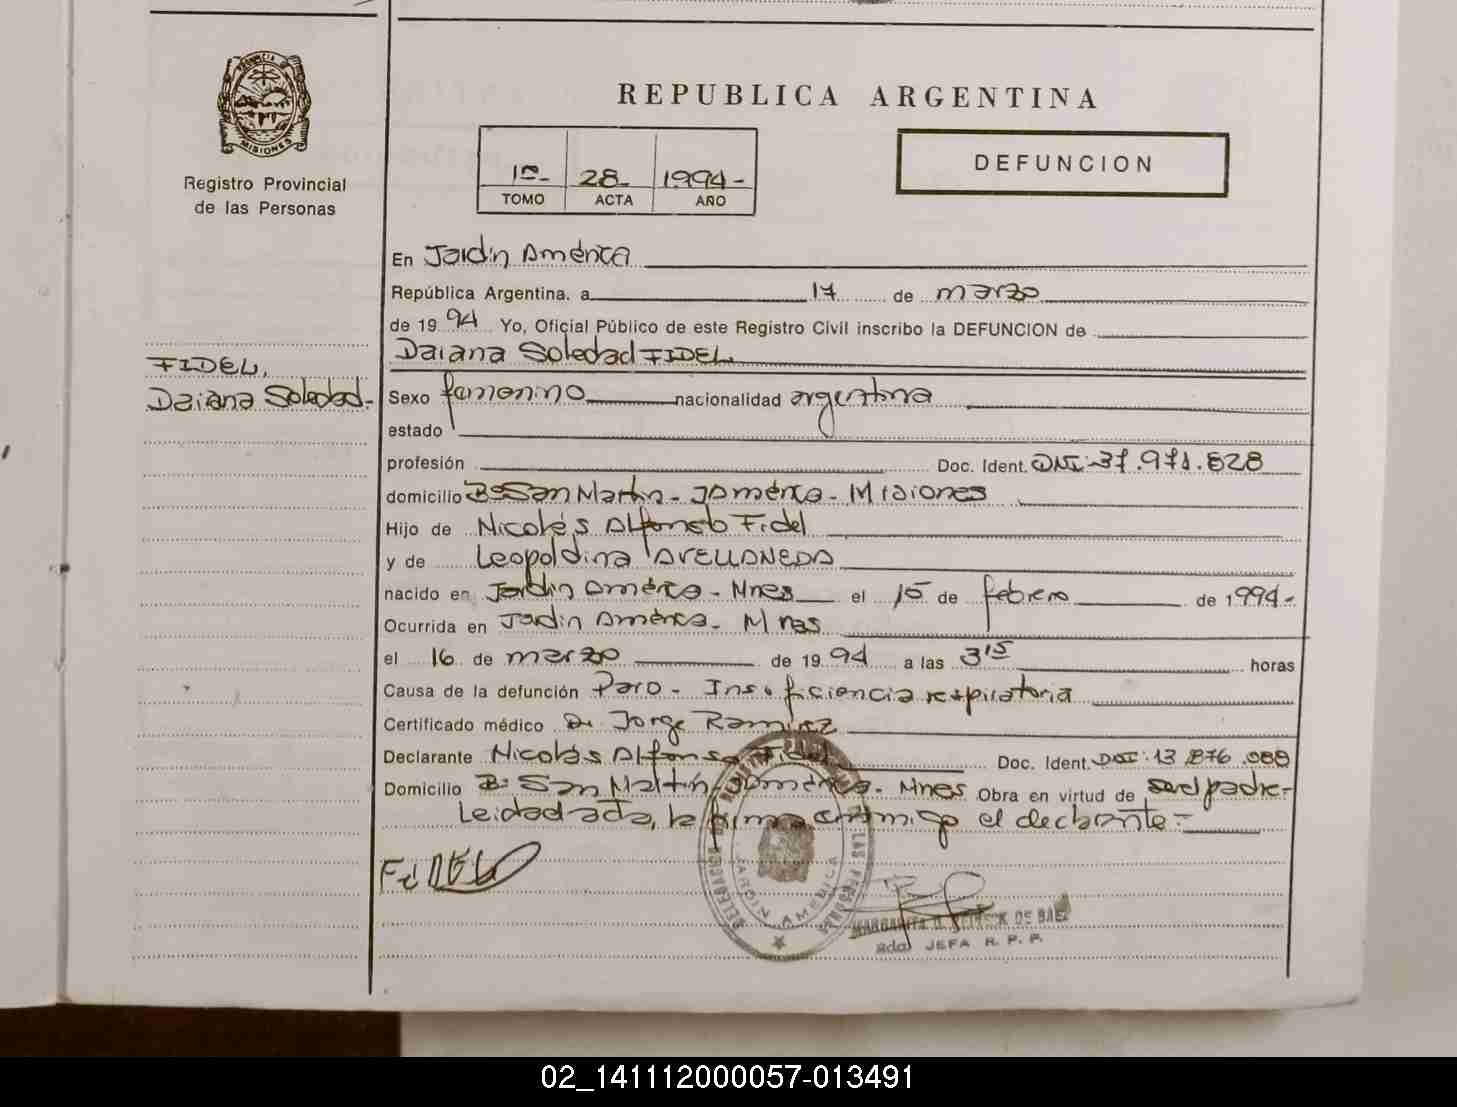 PROVINCIA DE
MISIONES
Registro Provincial
de las Personas
FIDEL,
Daiana Soledad-
REPUBLICA ARGENTINA
1º- 28- 1994-
TOMO ACTA AÑO
DEFUNCION
En Jardin América
República Argentina. a 17 de marzo
de 1994 Yo, Oficial Público de este Registro Civil inscribo la DEFUNCION de
Daiana Soledad FIDEL
Sexo femenino nacionalidad argentina
estado
profesión Doc. Ident. DNI: 37.971.828
domicilio Bº San Martin - J América - Misiones
Hijo de Nicolás Alfonso Fidel
y de Leopoldina AVELLANEDA
nacido en Jardin América - Mnes el 15 de febrero de 1994-
Ocurrida en Jardin América - Mnes
el 16 de marzo de 1994 a las 3 15 horas
Causa de la defunción Paro - Insuficiencia respiratoria
Certificado médico Dr Jorge Ramirez
Declarante Nicolás Alfonso Fidel Doc. Ident. DNI: 13.876.088
Domicilio Bº San Martín J América - Mnes Obra en virtud de ser padre-
Leida acta, la firma conmigo el declarante-
FiDEL
DELEGACION
JARDIN AMERICA
MARGARITA DE BAEZ
JEFA R. P. P.
02_141112000057-013491